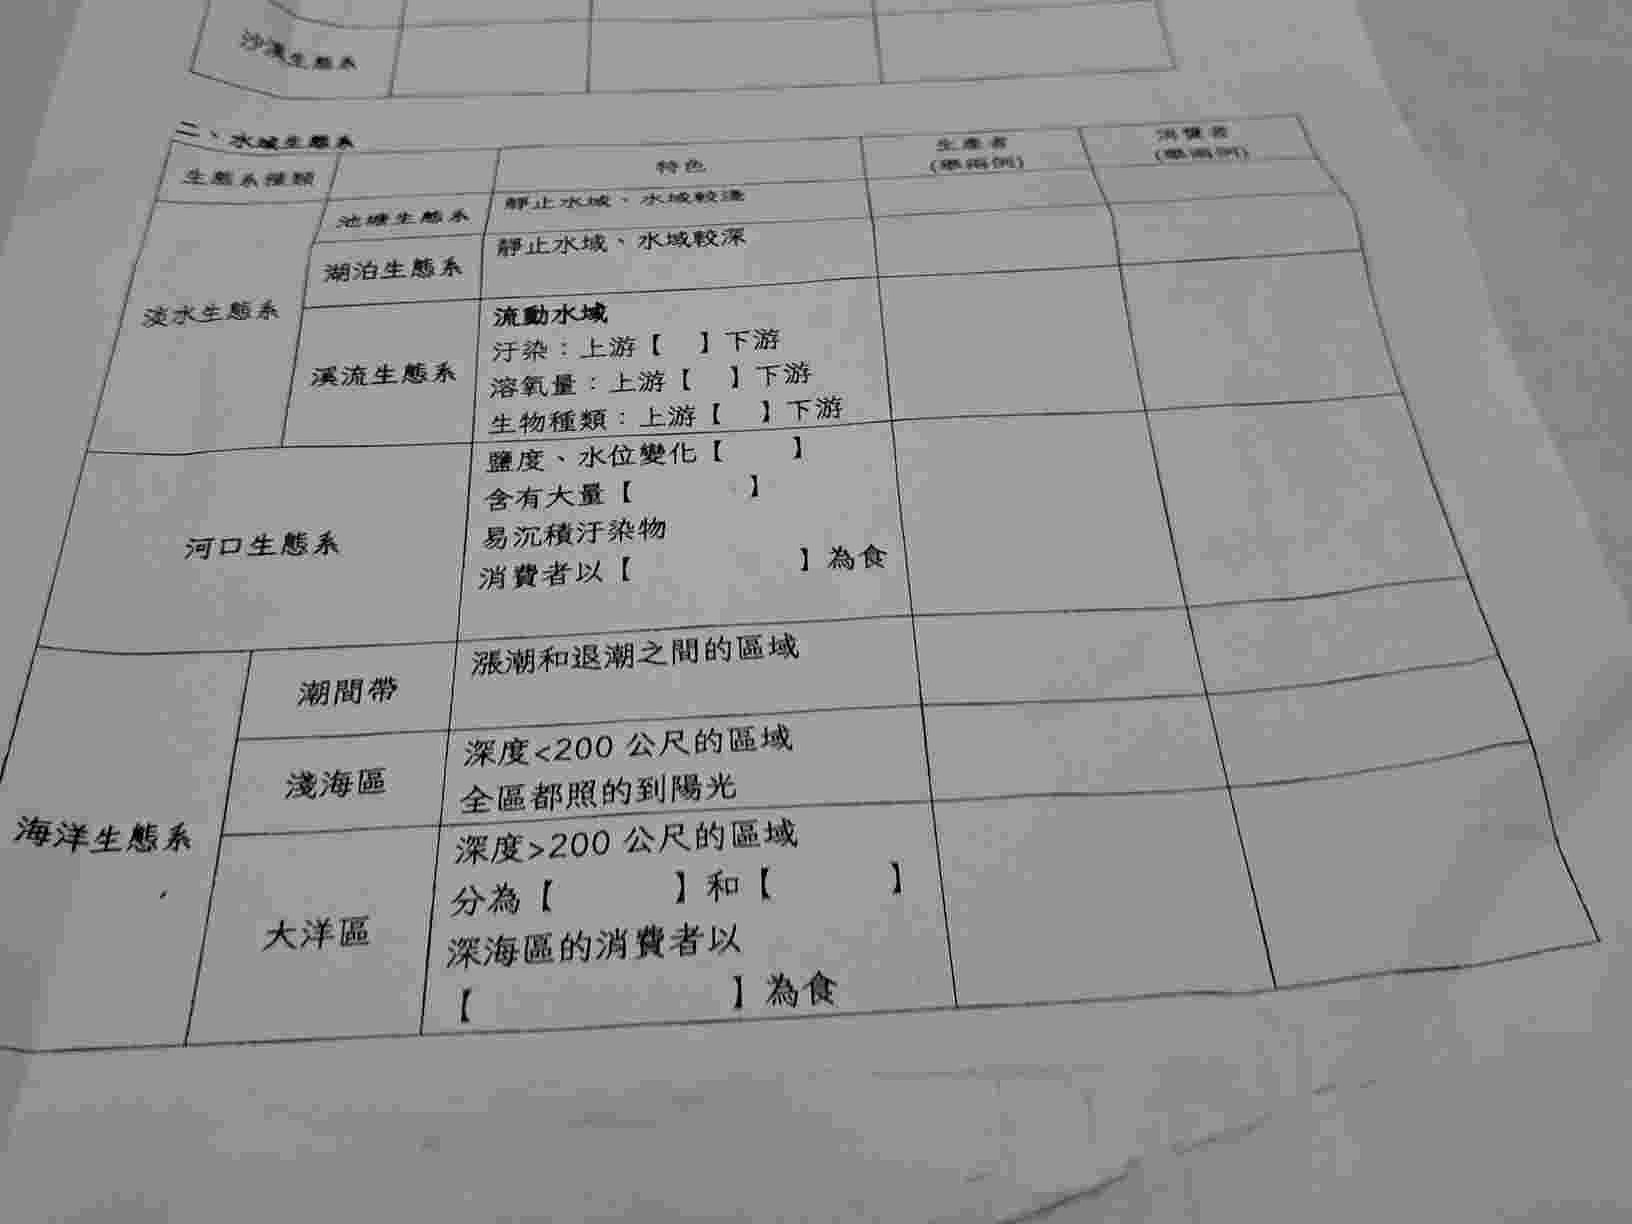 沙漠生態系
二、水域生態系
生態系種類
特色
生產者
(舉兩例)
消費者
(舉兩例)
淡水生態系
池塘生態系
靜止水域、水域較淺
湖泊生態系
靜止水域、水域較深
溪流生態系
流動水域
汙染：上游【 】下游
溶氧量：上游【 】下游
生物種類：上游【 】下游
河口生態系
鹽度、水位變化【 】
含有大量【 】
易沉積汙染物
消費者以【 】為食
海洋生態系
潮間帶
漲潮和退潮之間的區域
淺海區
深度<200 公尺的區域
全區都照的到陽光
大洋區
深度>200 公尺的區域
分為【 】和【 】
深海區的消費者以
【 】為食